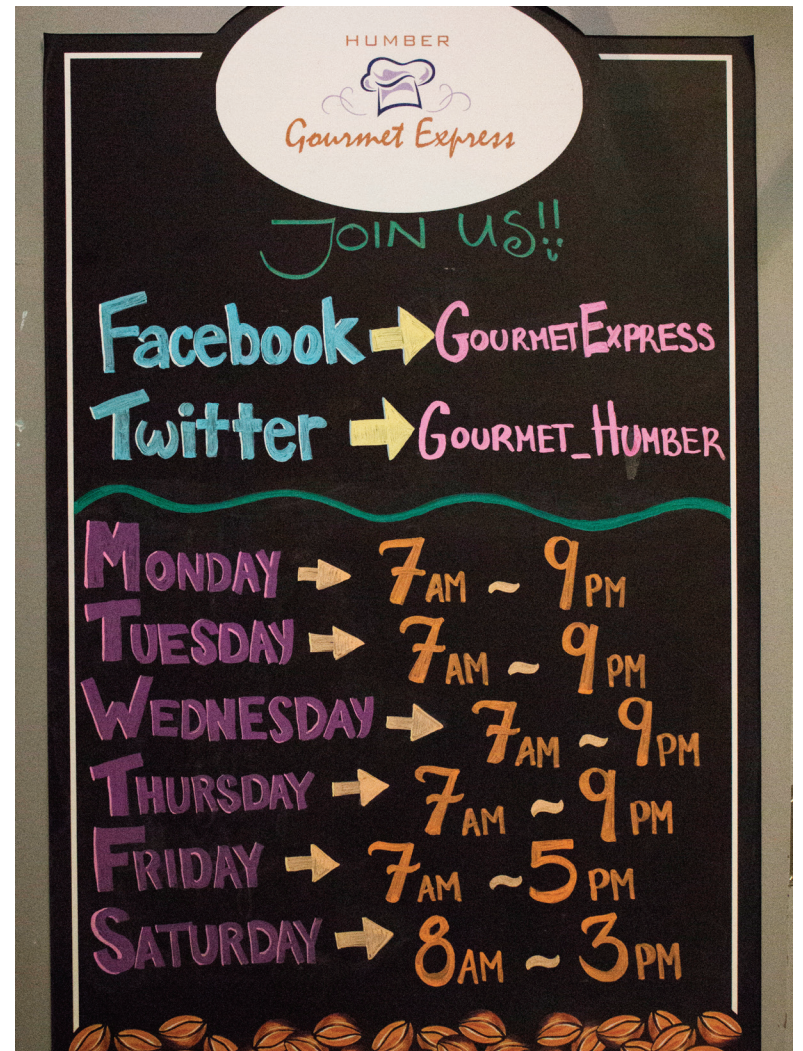 HUMBER
Gourmet Express
JOIN US!!
Facebook → GOURMETEXPRESS
Twitter → GOURMET_HUMBER
MONDAY → 7AM ~ 9PM
TUESDAY → 7AM ~ 9PM
WEDNESDAY → 7AM ~ 9PM
THURSDAY → 7AM ~ 9PM
FRIDAY → 7AM ~ 5PM
SATURDAY → 8AM ~ 3PM